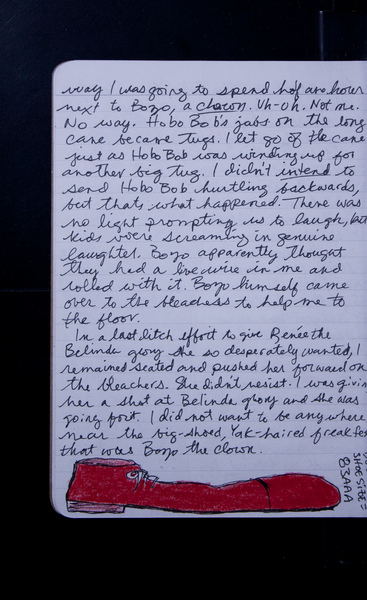 way I was going to spend half an hour
next to Bozo, a clown. Uh-oh. Not me.
No way. Hobo Bob's jabs on the long
cane became tugs. I let go of the cane
just as Hobo Bob was winding up for
another big tug. I didn't intend to
send Hobo Bob hurtling backwards,
but that's what happened. There was
no light prompting us to laugh, but
kids were screaming in genuine
laughter. Bozo apparently thought
they had a live wire in me and
rolled with it. Bozo himself came
over to the bleachers to help me to
the floor.
In a last ditch effort to give Renée the
Belinda glory she so desperately wanted, I
remained seated and pushed her forward on
the bleachers. She didn't resist. I was givin
her a shot at Belinda glory and she was
going for it. I did not want to be anywhere
near the big-shoed, Yak-haired freak fes
that was Bozo the clown.
SHOE SIZE =
83AAA